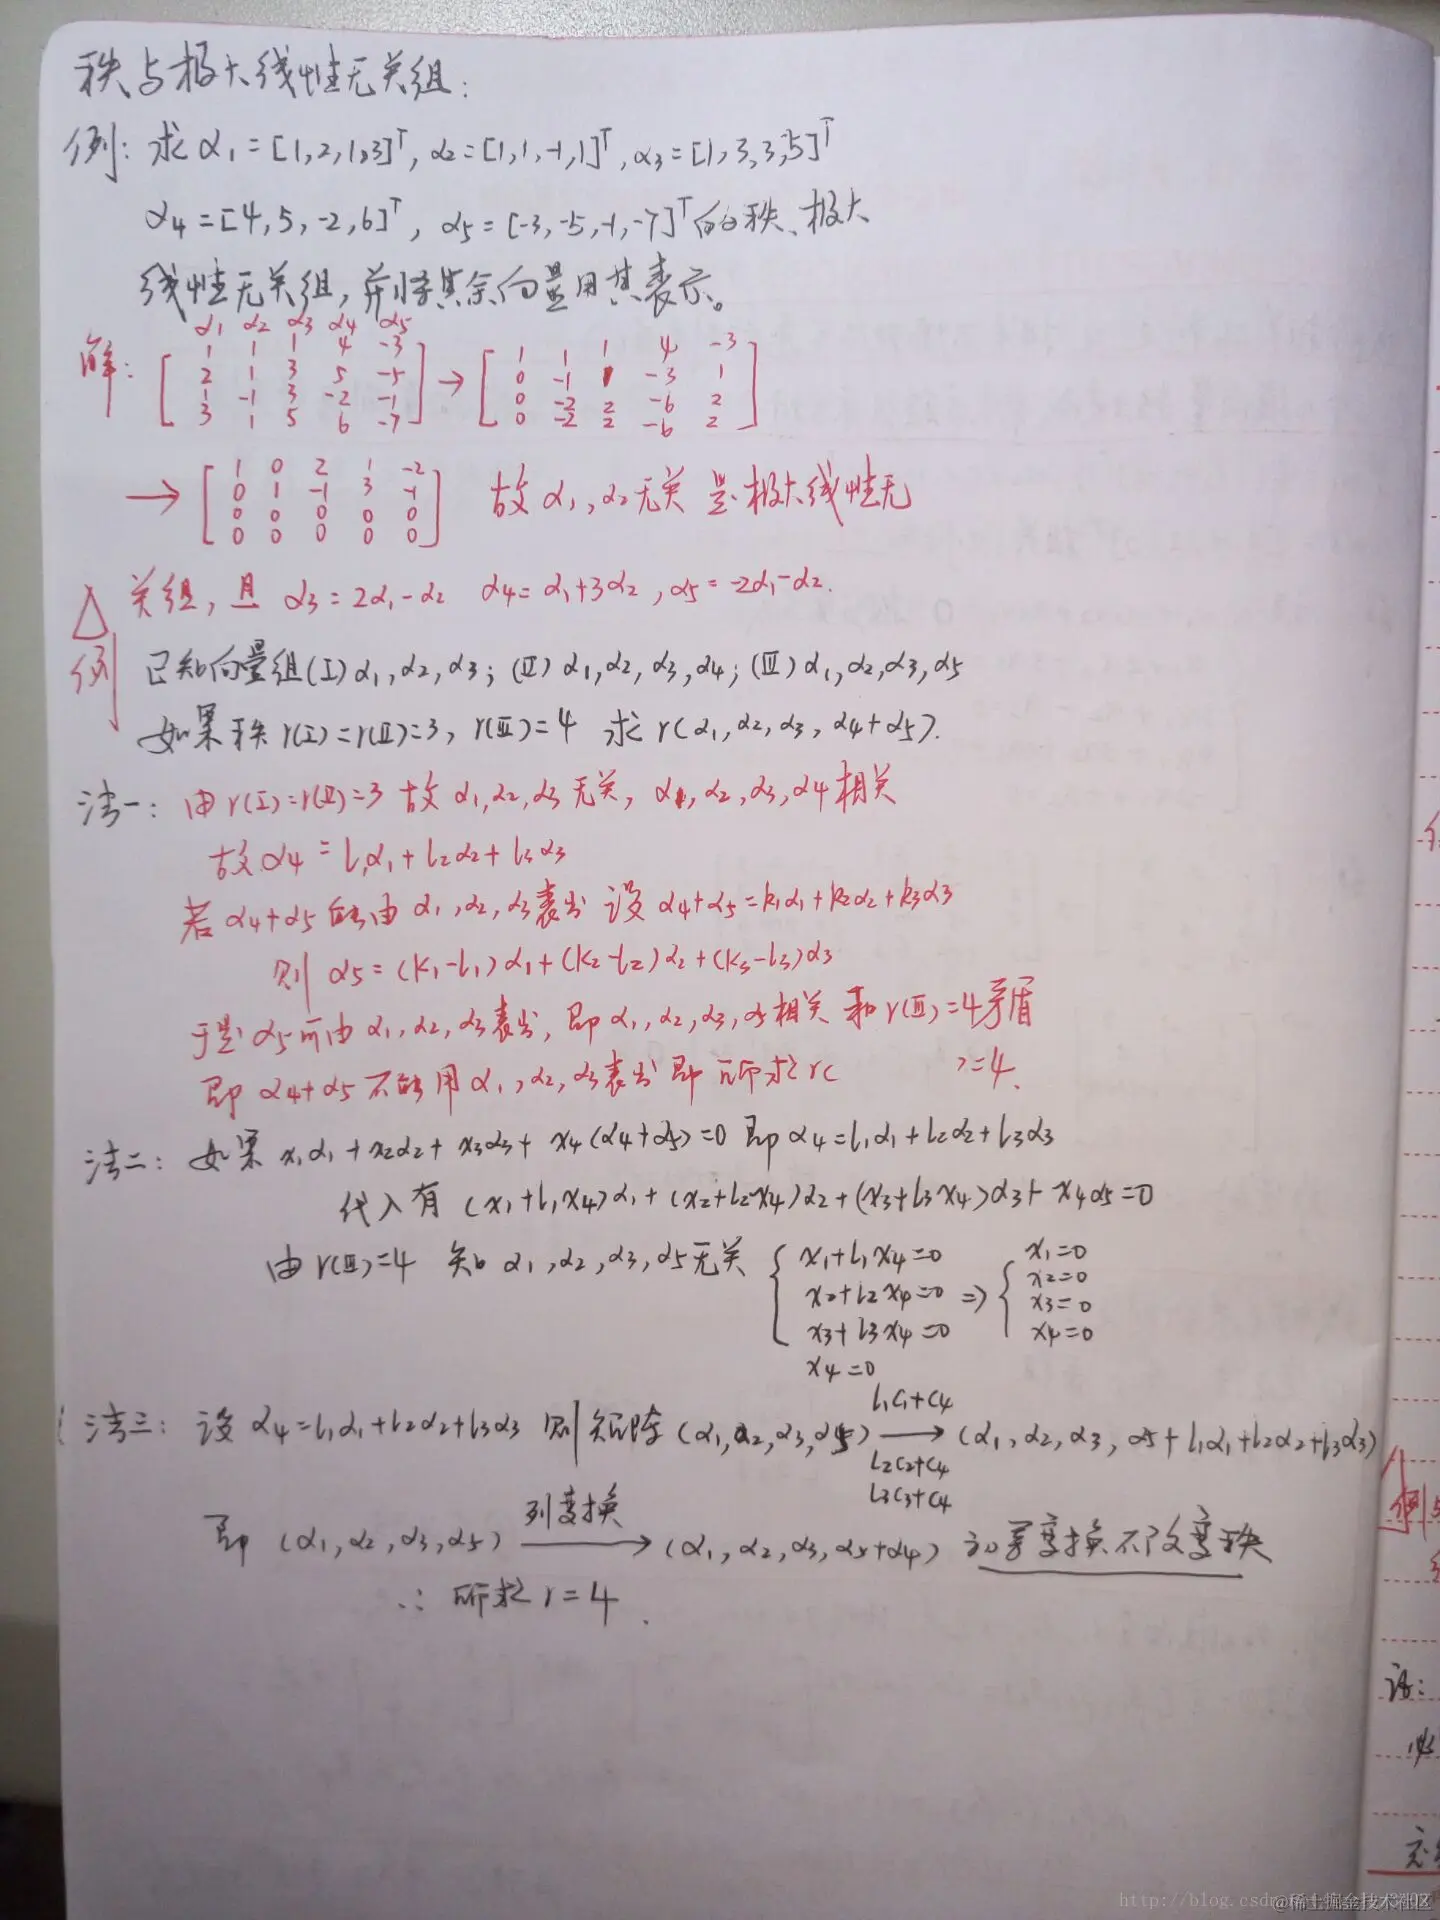 秩与极大线性无关组:
例: 求 α1=[1,2,1,3]ᵀ, α2=[1,1,-1,1]ᵀ, α3=[1,3,3,5]ᵀ
α4=[4,5,-2,6]ᵀ, α5=[-3,-5,-1,-7]ᵀ 的秩、极大
线性无关组, 并将其余向量用其表示。
α1 α2 α3 α4 α5
解: [1 1 1 4 -3; 2 1 3 5 -5; 1 -1 3 -2 -1; 3 1 5 6 -7] → [1 1 1 4 -3; 0 -1 1 -3 1; 0 -2 2 -6 2; 0 -2 2 -6 2]
→ [1 0 2 1 -2; 0 1 -1 3 -1; 0 0 0 0 0; 0 0 0 0 0] 故 α1, α2 无关 是极大线性无
△ 关组, 且 α3=2α1-α2 α4=α1+3α2, α5=-2α1-α2.
例 已知向量组(Ⅰ) α1, α2, α3; (Ⅱ) α1, α2, α3, α4; (Ⅲ) α1, α2, α3, α5
如果秩 r(Ⅰ)=r(Ⅱ)=3, r(Ⅲ)=4 求 r(α1, α2, α3, α4+α5).
法一: 由 r(Ⅰ)=r(Ⅱ)=3 故 α1, α2, α3 无关, α1, α2, α3, α4 相关
故 α4=l1α1+l2α2+l3α3
若 α4+α5 能由 α1, α2, α3 表出 设 α4+α5=k1α1+k2α2+k3α3
则 α5=(k1-l1)α1+(k2-l2)α2+(k3-l3)α3
于是 α5 可由 α1, α2, α3 表出, 即 α1, α2, α3, α5 相关 和 r(Ⅲ)=4 矛盾
即 α4+α5 不能用 α1, α2, α3 表出 即 所求 r( )=4.
法二: 如果 x1α1+x2α2+x3α3+x4(α4+α5)=0 即 α4=l1α1+l2α2+l3α3
代入有 (x1+l1x4)α1+(x2+l2x4)α2+(x3+l3x4)α3+x4α5=0
由 r(Ⅲ)=4 知 α1, α2, α3, α5 无关 { x1+l1x4=0 ⇒ { x1=0
x2+l2x4=0 x2=0
x3+l3x4=0 x3=0
x4=0 x4=0
l1c1+c4
法三: 设 α4=l1α1+l2α2+l3α3 则矩阵 (α1, α2, α3, α5) → (α1, α2, α3, α5+l1α1+l2α2+l3α3)
l2c2+c4
l3c3+c4
列变换
即 (α1, α2, α3, α5) → (α1, α2, α3, α5+α4) 初等变换不改变秩
∴ 所求 r=4.
△
例
注:
@稀土掘金技术社区